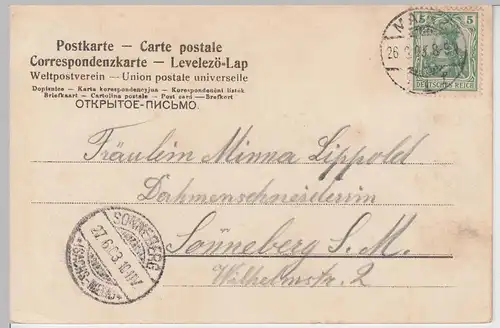 Postkarte — Carte postale
Correspondenzkarte — Levelező-Lap
Weltpostverein — Union postale universelle
Dopisnice — Karta korespondencyjna — Korespondenční lístek
Briefkaart — Cartolina postale — Post card — Brefkort
ОТКРЫТОЕ-ПИСЬМО.
5 5
DEUTSCHES REICH
Fräulein Minna Lippold
Dahmenschneiderin
Sonneberg S. M.
Wilhelmstr. 2
SONNEBERG
27.6.03.
(SACHS.-MEIN.)